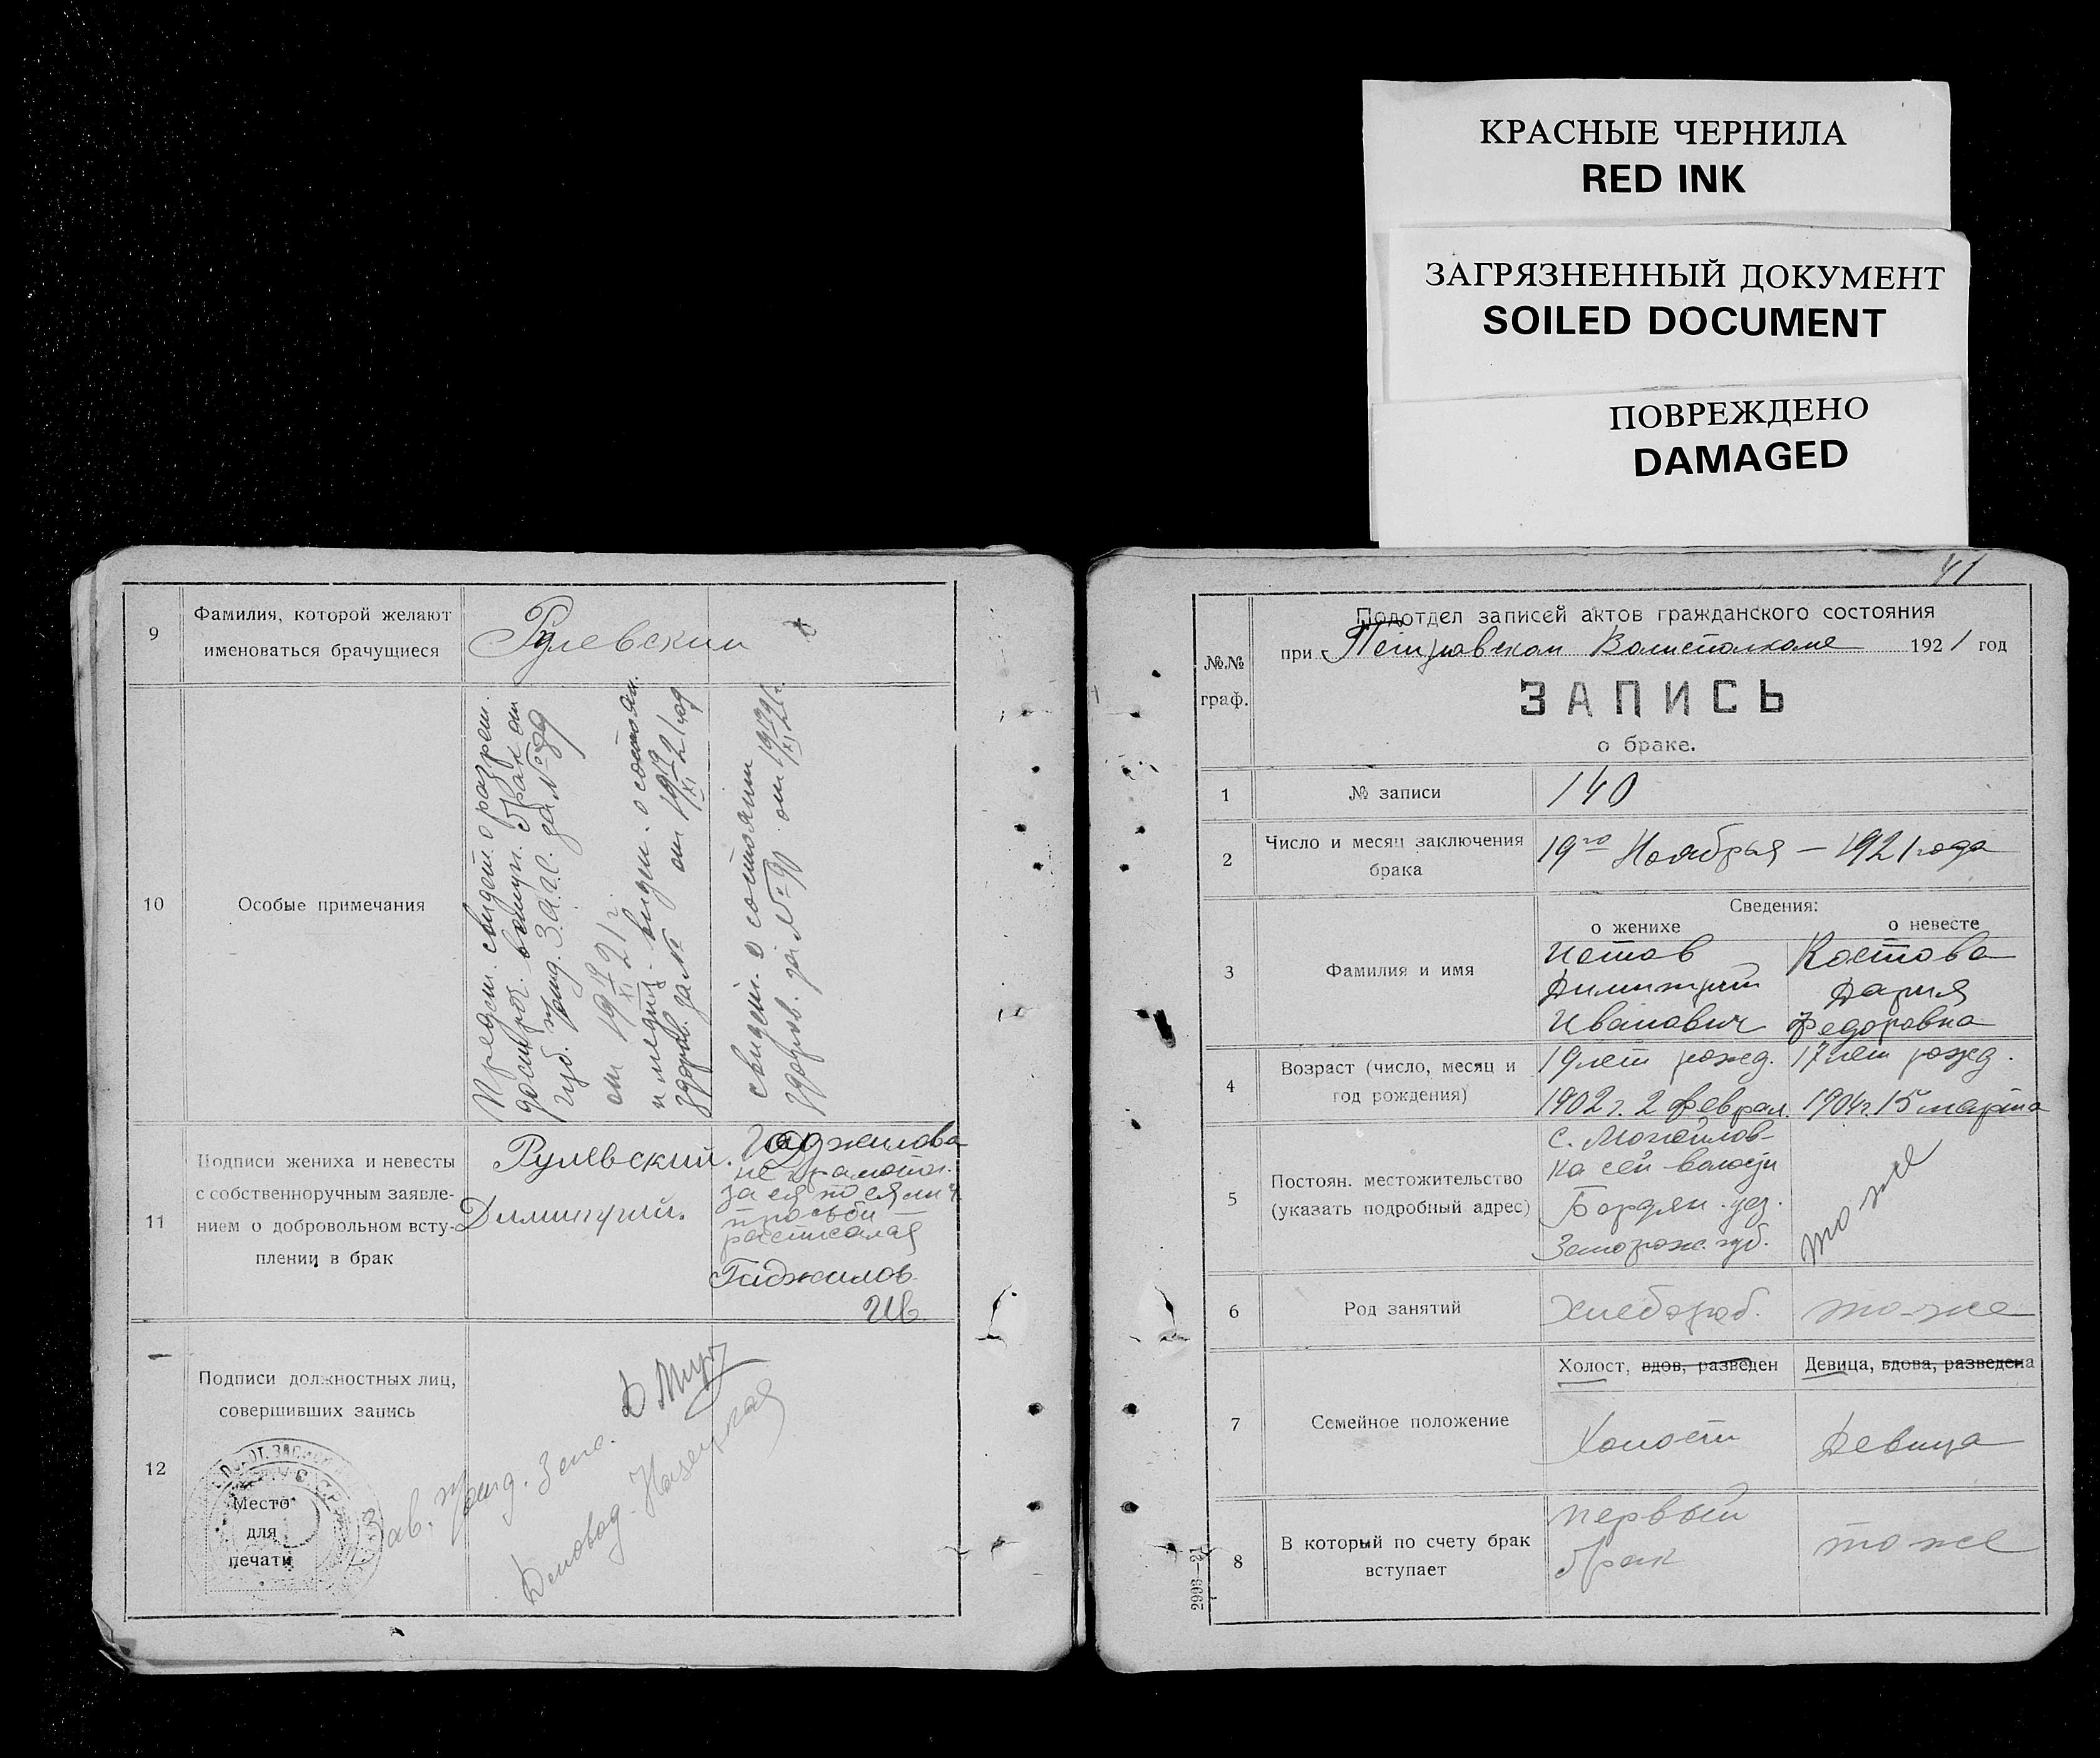 КРАСНЫЕ ЧЕРНИЛА
RED INK
ЗАГРЯЗНЕННЫЙ ДОКУМЕНТ
SOILED DOCUMENT
ПОВРЕЖДЕНО
DAMAGED
9
Фамилия, которой желают
именоваться брачущиеся
Рулевский
10
Особые примечания
от 19 19/XI 21 г.
здоров. за № от 19 19/XI 21 год
свидет. о состоянии
здоров. за № 90 от 19 19/XI 21 г.
11
Подписи жениха и невесты
с собственноручным заявле-
нием о добровольном всту-
плении в брак
Рулевский
Димитрий.
Гаджилова
не грамотн.
за ея по ея личн.
просьби
росписался
Гаджилов
Ив.
12
Подписи должностных лиц,
совершивших запись
Место
для
печати
Зав.
Деловод.
41
№.№
граф.
Подотдел записей актов гражданского состояния
при Петровском Волисполкоме 1921 год
ЗАПИСЬ
о браке.
1
№ записи
140
2
Число и месяц заключения
брака
19го Ноября — 1921 года
Сведения:
о женихе
о невесте
3
Фамилия и имя
Димитрий
Иванович
Костова
Дария
Федоровна
4
Возраст (число, месяц и
год рождения)
19 лет рожд.
1902 г. 2 феврал.
17 лет рожд.
1904 г. 15 марта
5
Постоян. местожительство
(указать подробный адрес)
ка сей волости
Бердян. уез.
Запорож. губ.
то же
6
Род занятий
хлебороб.
то-же
7
Семейное положение
Холост, вдов, разведен
Девица, вдова, разведена
Холост
Девица
8
В который по счету брак
вступает
первый
брак
то же
2993—21